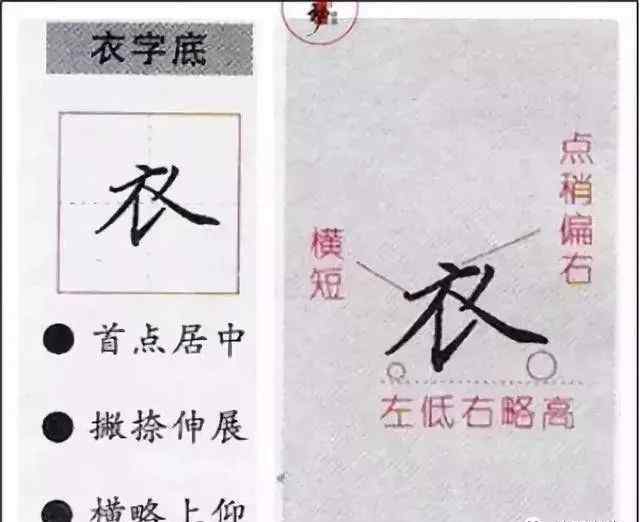 衣字底
衣
首点居中
撇捺伸展
横略上仰
点稍偏右
横短
衣
左低右略高